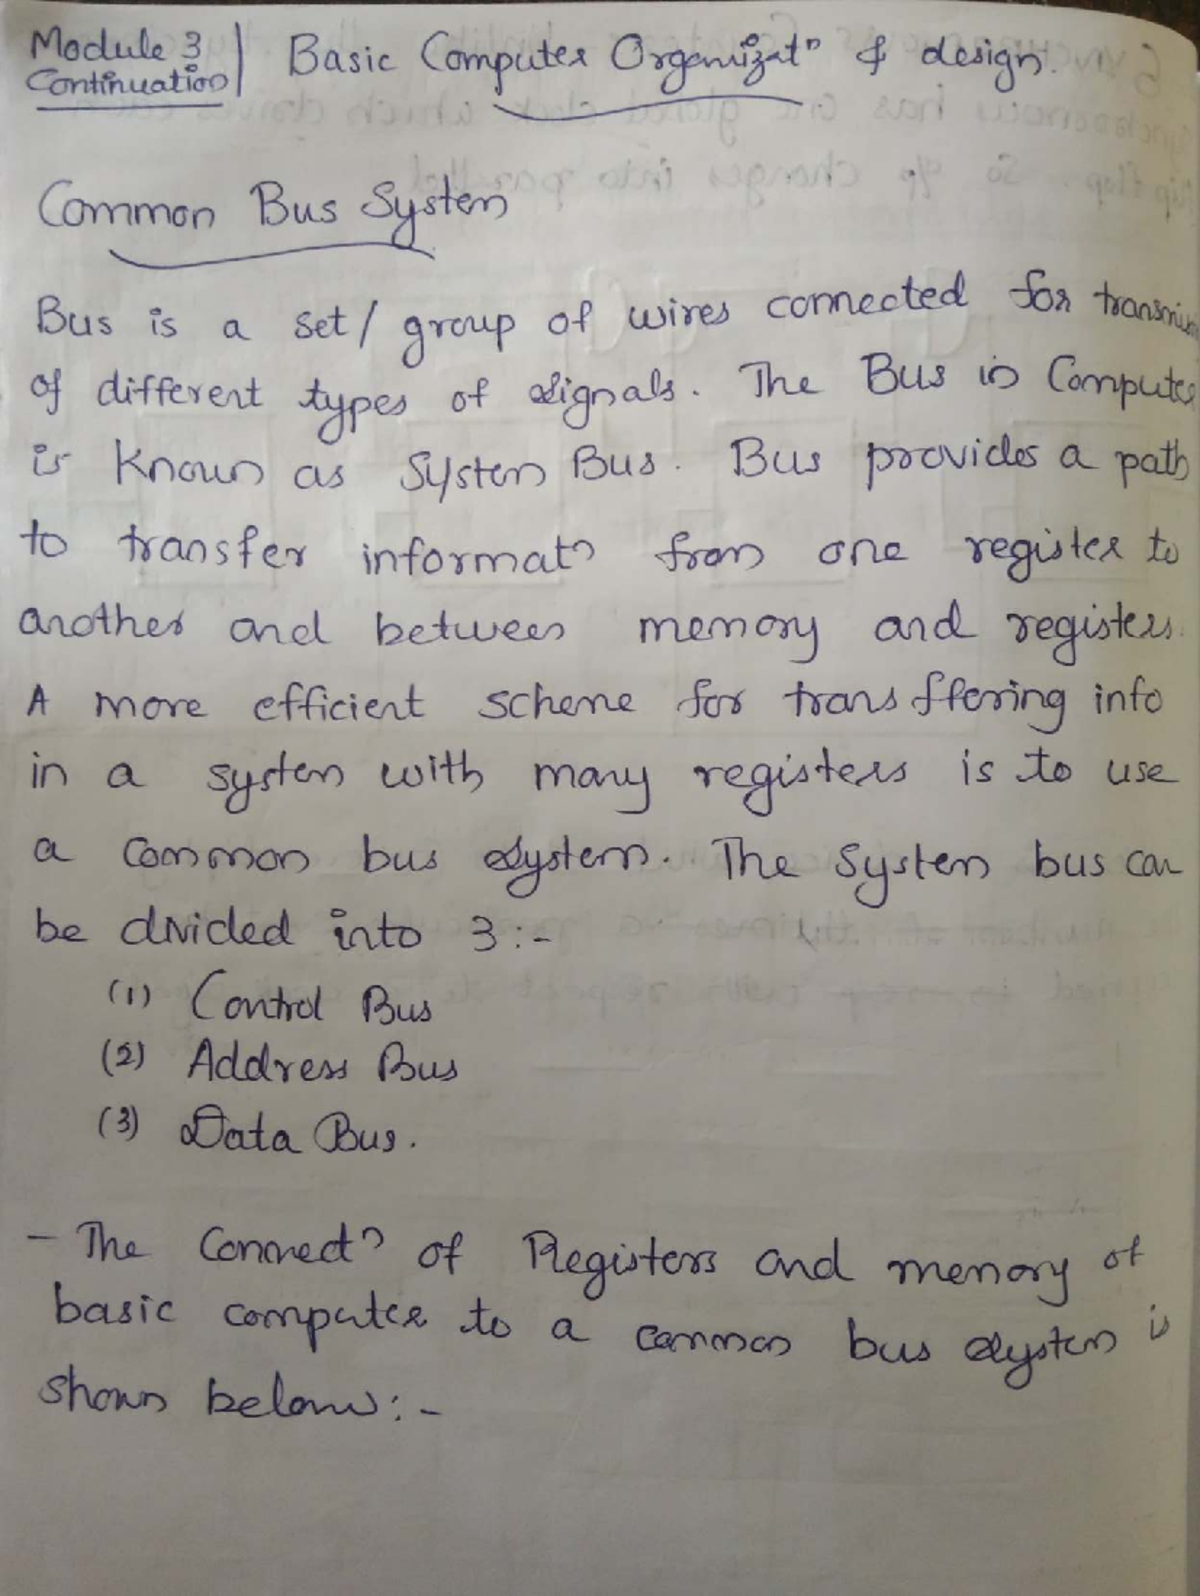 Module 3 Continuation | Basic Computer Organizatn & design.
Common Bus System
Bus is a set/ group of wires connected for
of different types of signals. The Bus in Computer
is known as System Bus. Bus provides a path
to transfer informatn from one register to
another and between memory and registers.
A more efficient scheme for transffering info
in a system with many registers is to use
a common bus system. The System bus can
be divided into 3:-
(1) Control Bus
(2) Address Bus
(3) Data Bus.
- The Connectn of Registers and memory of
basic computer to a common bus system is
shown below:-